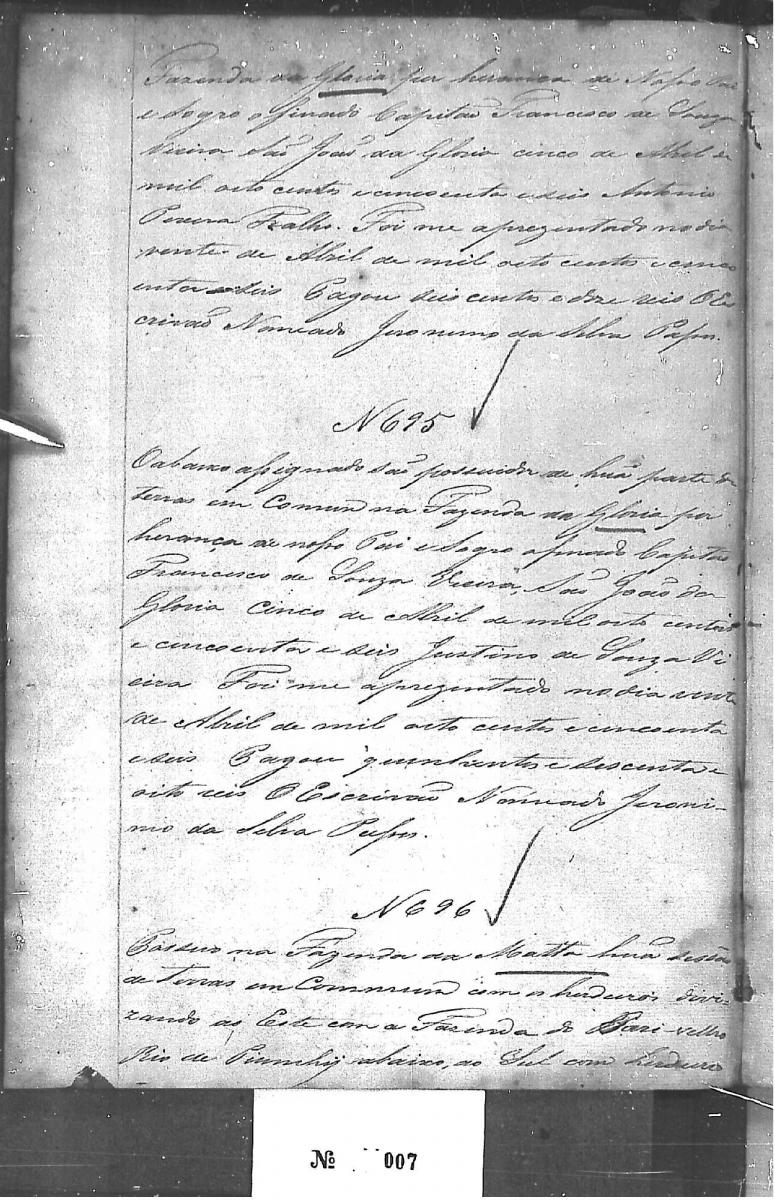 Fazenda da Gloria por herança de Nosso Pai
e Sogro o finado Capitaõ Francisco de Souza
Vieira Saõ Joaõ da Gloria cinco de Abril de
mil oito centos e cincoenta e seis Antonio
Pereira. Foi me aprezentado no dia
vente de Abril de mil oito centos e cinco
enta e seis Pagou seis centos e doze reis O Es
crivaõ Nomeado Jeronimo da Silva
N 695
O abaixo assignado saõ possuidor de huã parte de
terras em Comum na Fazenda da Gloria por
herança de nosso Pai e Sogro o finado Capitaõ
Francisco de Souza Vieira, Saõ Joaõ da
Gloria Cinco de Abril de mil oito centos
e cincoenta e seis Justino de Souza Vi
eira Foi me aprezentado no dia vente
de Abril de mil oito centos e cincoenta
e seis Pagou quinhentos e sescenta e
oito reis O Escrivaõ Nomeado Jeroni-
mo da Silva
N 696
Possuo na Fazenda da Matta huã
de terras em Commum com os herdeiros divi
zando ao Este com a Fazenda do Pari velho
Rio de Piumhy abaixo, ao Sul com herdeiro
№ 007